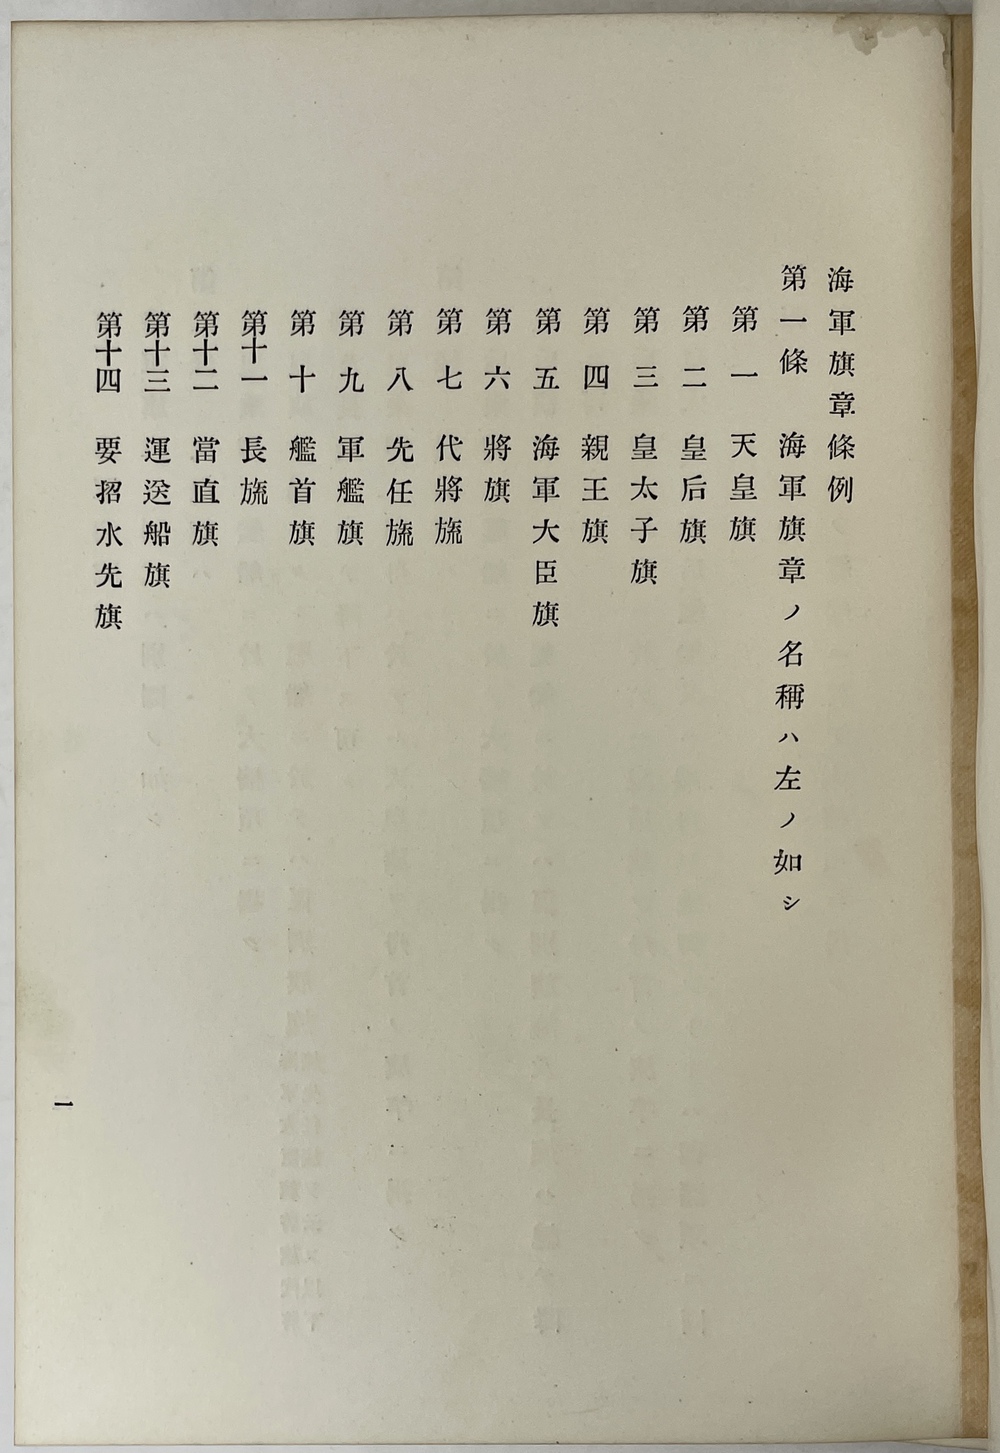 海軍旗章條例
第一條　海軍旗章ノ名稱ハ左ノ如シ
第一　天皇旗
第二　皇后旗
第三　皇太子旗
第四　親王旗
第五　海軍大臣旗
第六　將旗
第七　代將旒
第八　先任旒
第九　軍艦旗
第十　艦首旗
第十一　長旒
第十二　當直旗
第十三　運送船旗
第十四　要招水先旗
一